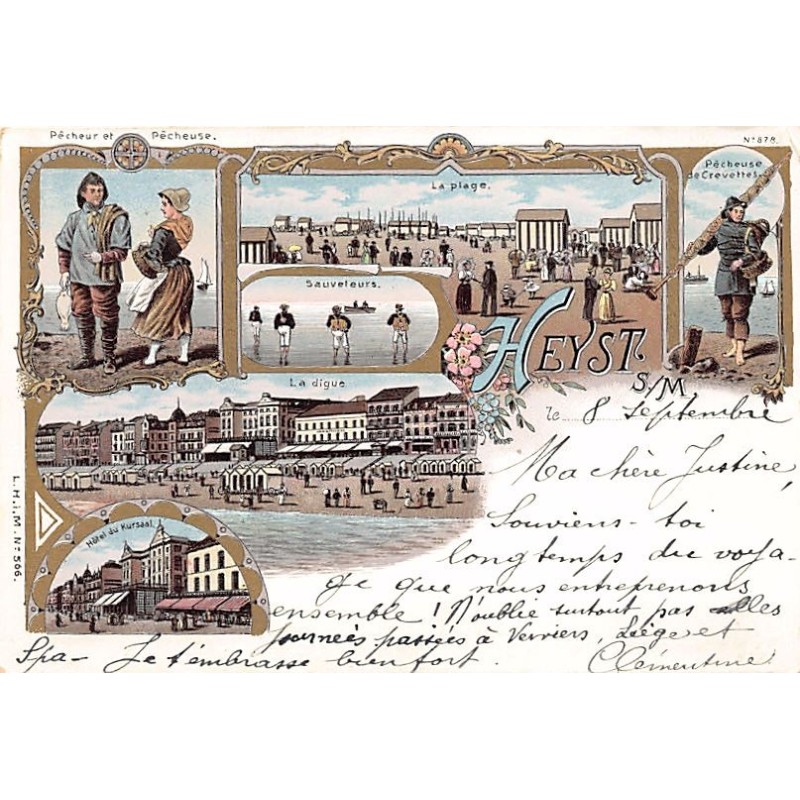 Pêcheur et Pêcheuse.
Nº 878.
La plage.
Pêcheuse
de Crevettes.
Sauveteurs.
HEYST S/M
La digue
le 8 Septembre
Ma chère Justine,
Souviens-toi
longtemps du voya-
ge que nous entreprenons
ensemble! N'oublie surtout pas les
journées passées à Verviers, Liège et
Spa - Je t'embrasse bien fort.
Clémentine
Hôtel du Kursaal.
L.H.i.M. Nº 506.